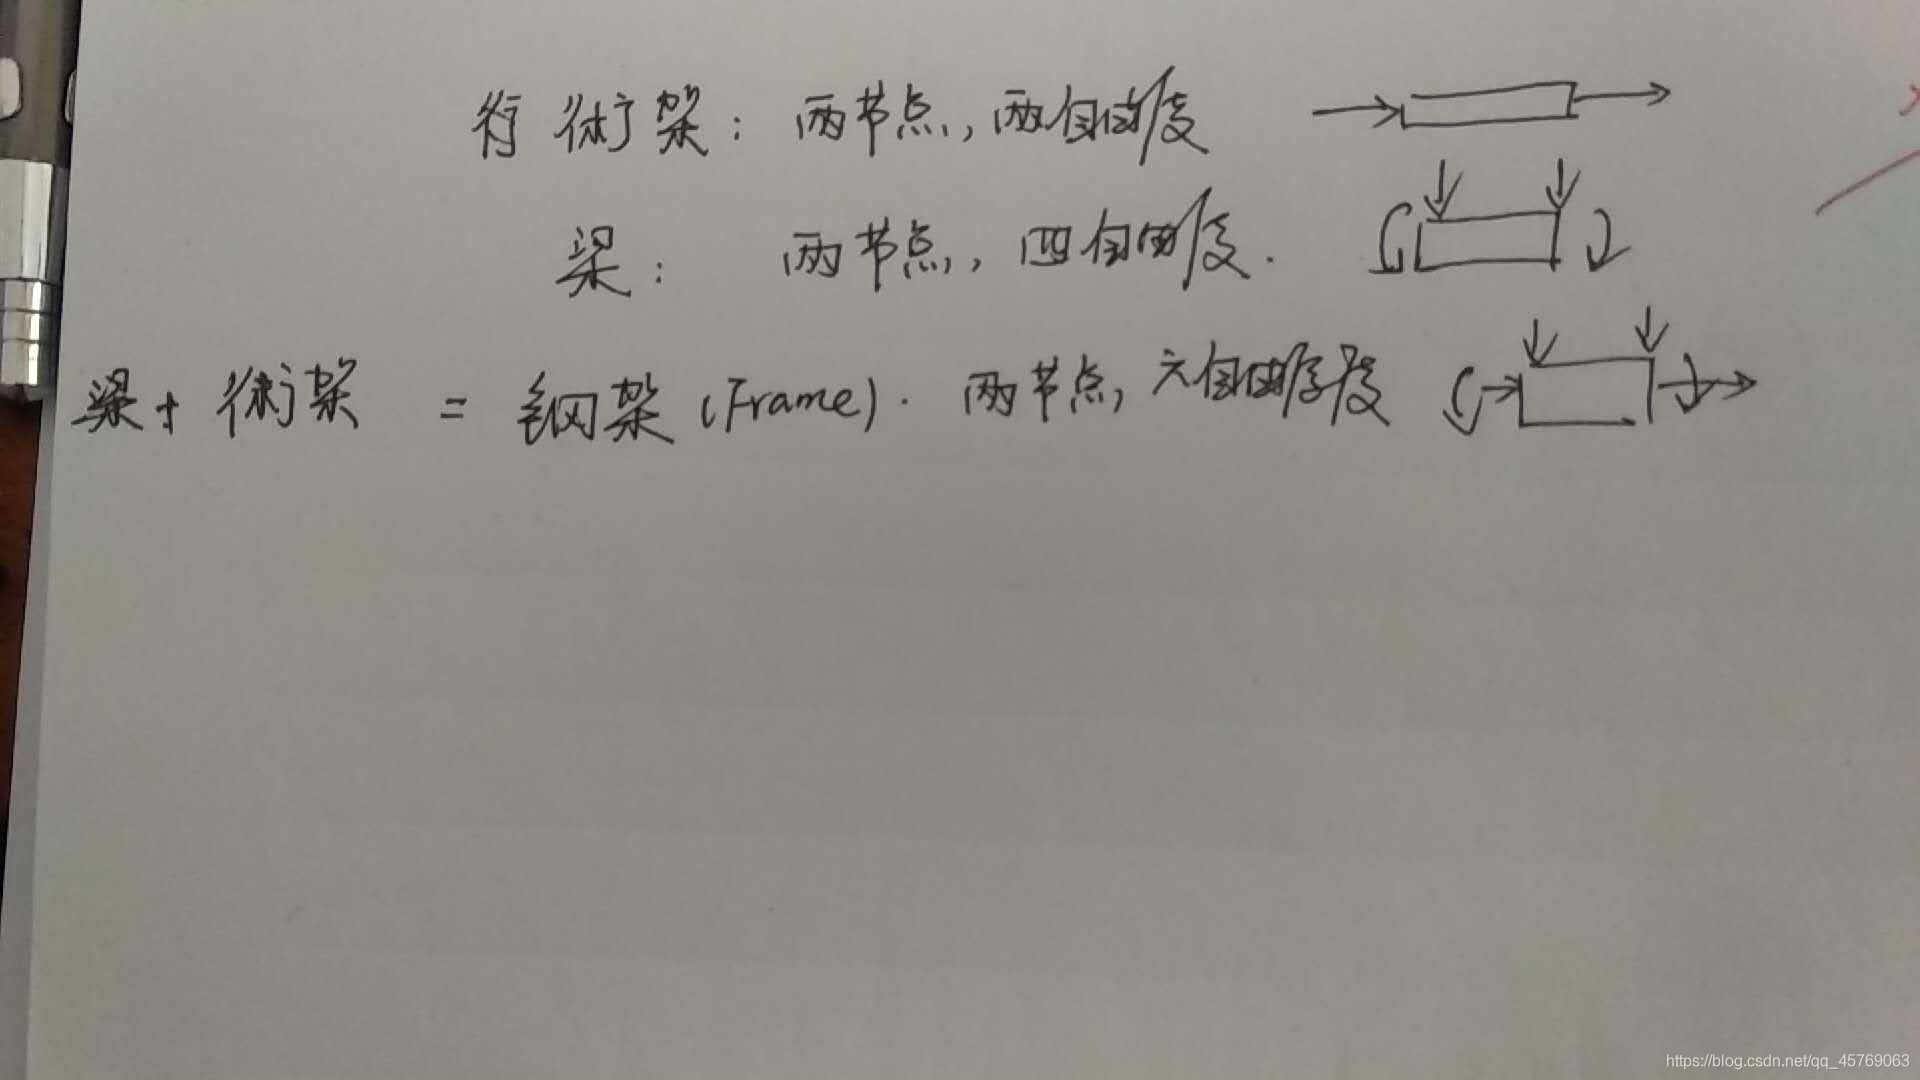 桁架：两节点，两自由度
梁：两节点，四自由度.
梁+桁架 = 钢架 (Frame). 两节点，六自由度
https://blog.csdn.net/qq_45769063